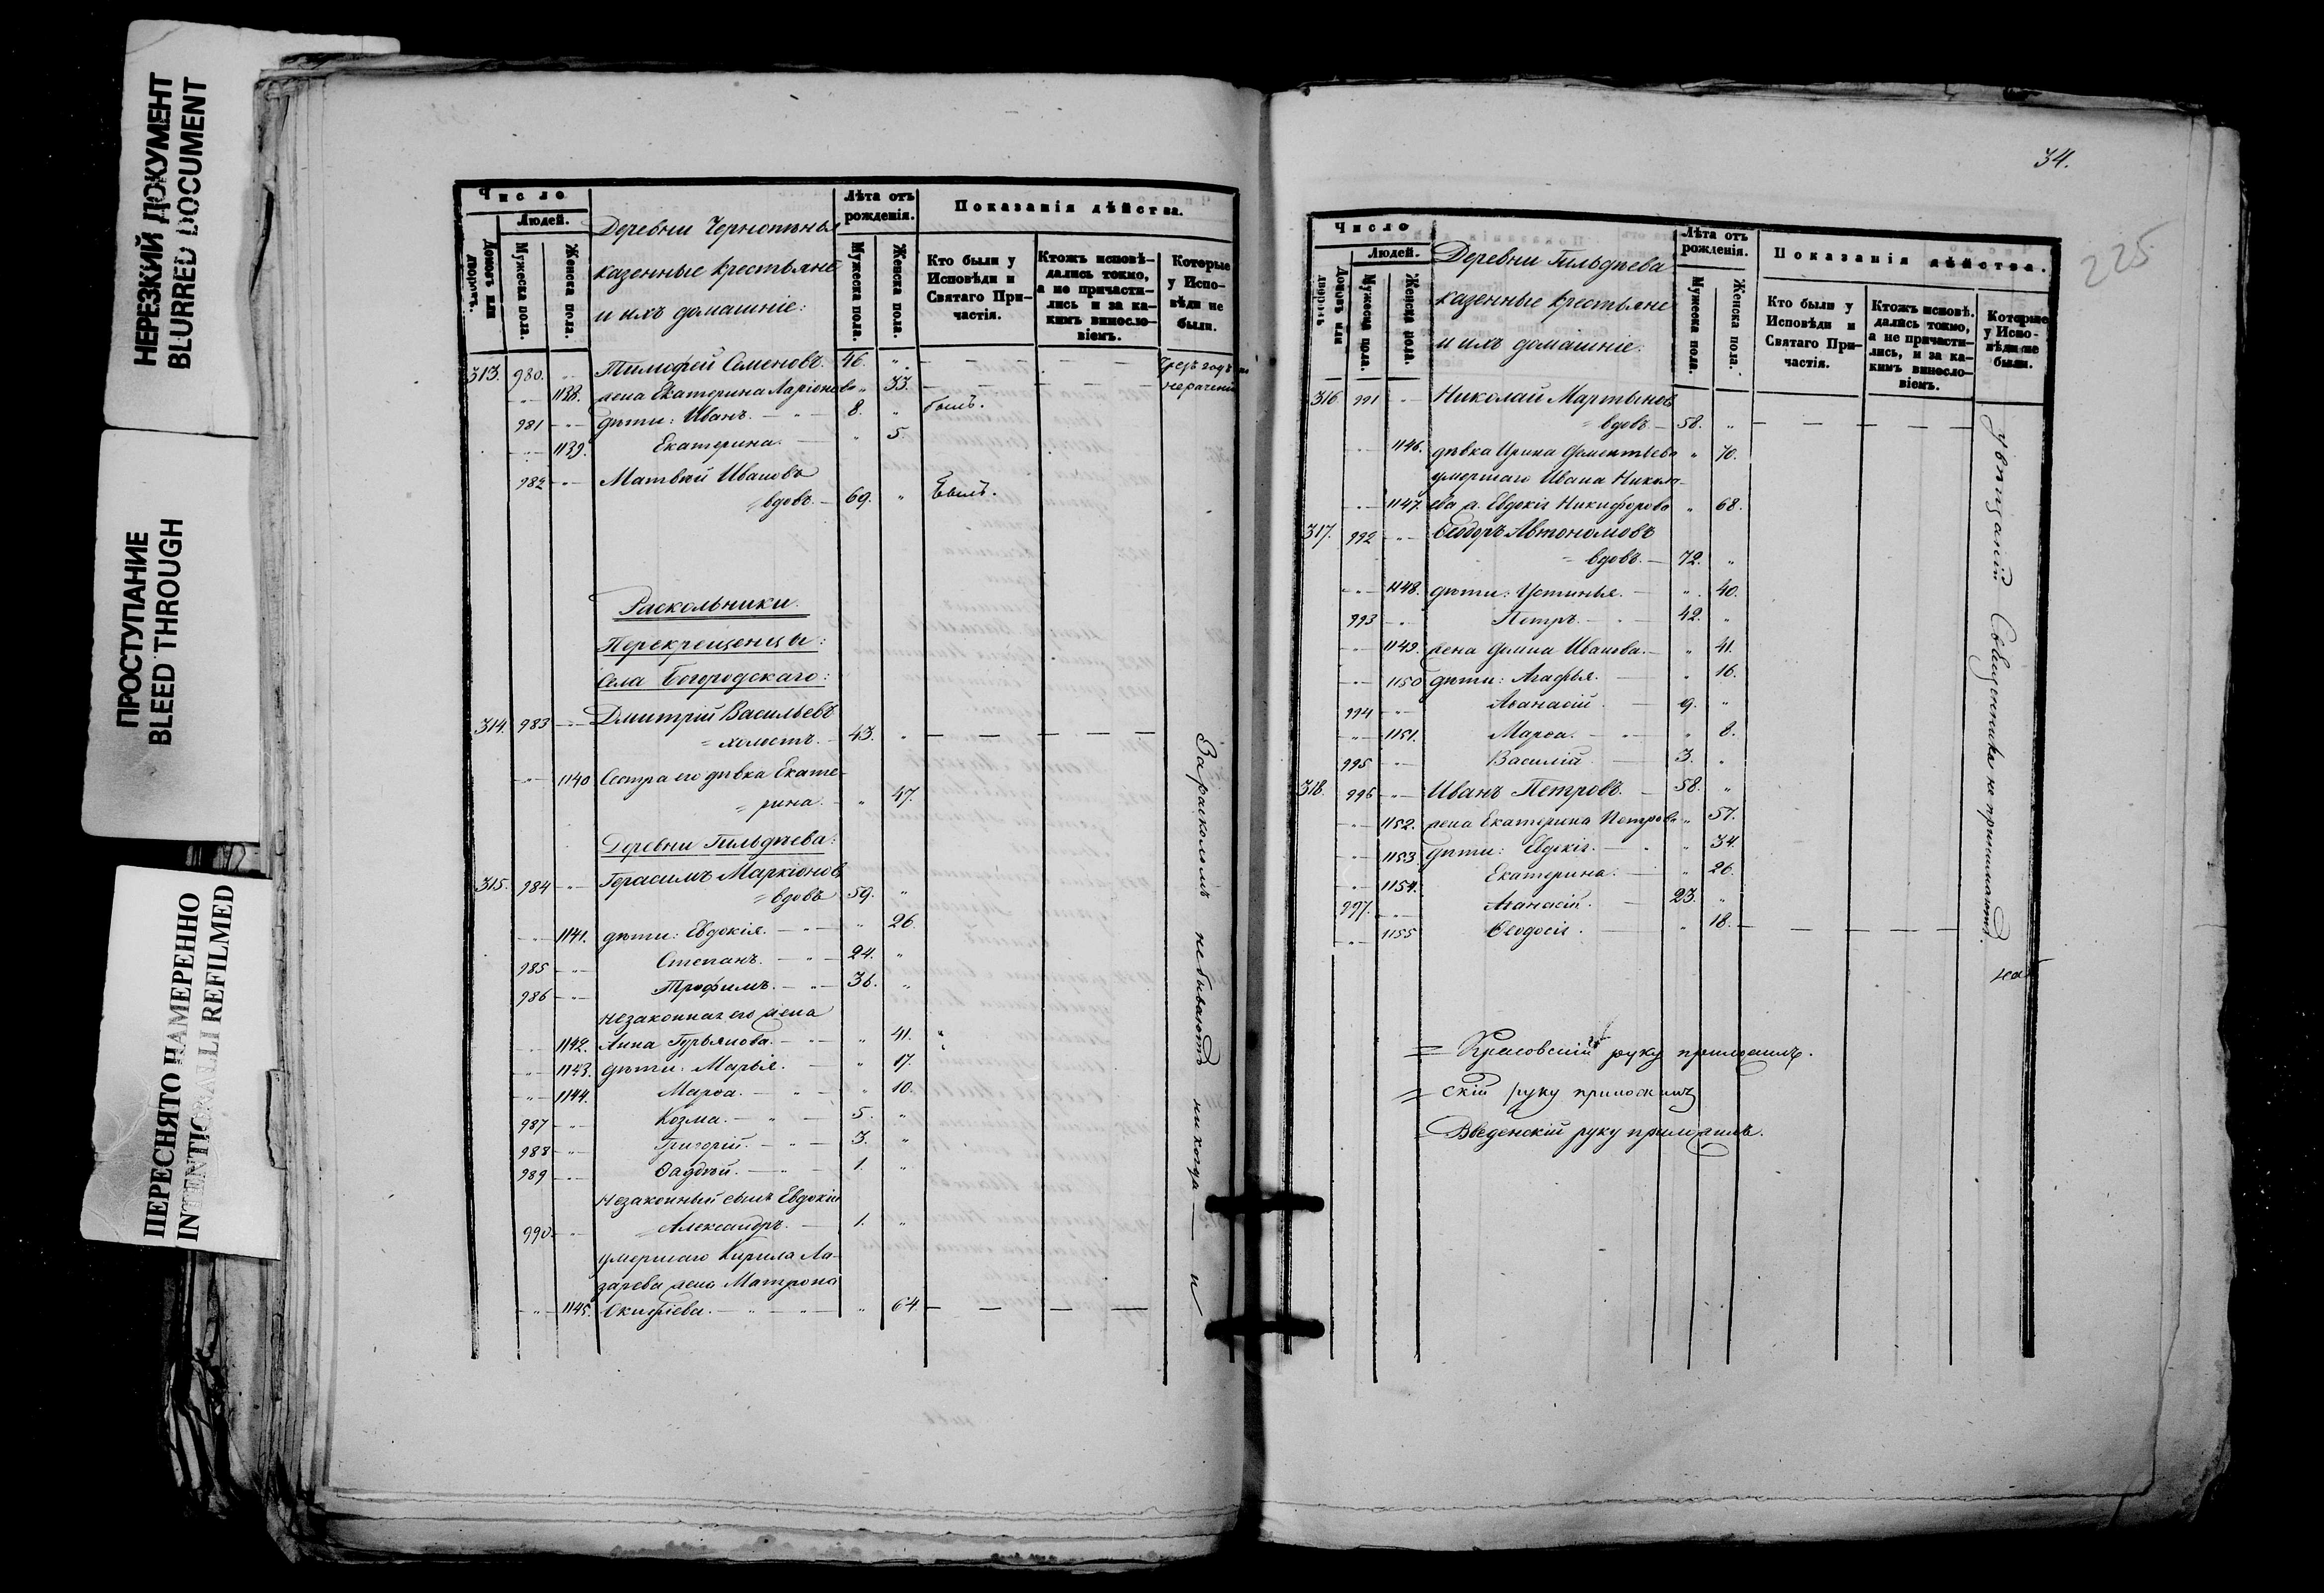 НЕРЕЗКИЙ ДОКУМЕНТ
BLURRED DOCUMENT
ПРОСТУПАНИЕ
BLEED THROUGH
ПЕРЕСНЯТО НАМЕРЕННО
INTENTIONALLI REFILMED
Число
Людей.
Домовъ или дворовъ.
Мужеска пола.
Женска пола.
Деревни
казенные крестьяне
и ихъ домашніе:
Лѣта отъ рожденія.
Мужеска пола.
Женска пола.
Показанія дѣйства.
Кто были у Исповѣди и Святаго Причастія.
Ктожъ исповѣдались токмо, а не причастились и за какимъ винословіемъ.
Которые у Исповѣди не были.
313. 980. Тимофей Семеновъ. 46.
1138. жена Екатерина Ларіонова 33.
981 дѣти: Иванъ. 8. былъ.
1139. Екатерина. 5.
982 Матвѣй Ивановъ
вдовъ. 69. былъ.
Раскольники.
Перекрещенцы:
Села Богородскаго:
314. 983 Дмитрій Васильевъ
холостъ. 43.
1140 Сестра его дѣвка Екате-
рина. 47.
Деревни Гильдѣева:
315. 984 Герасимъ Маркіоновъ
вдовъ 59.
1141. дѣти: Евдокія. 26.
985 Степанъ. 24.
986 Трофимъ. 36.
незаконная его жена
1142. Анна Гурьянова. 41.
1143. дѣти: Марья. 17.
1144. Марѳа. 10.
987 Козма. 5.
988 Григорій. 3.
989 Ѳаддѣй. 1.
Незаконный сынъ Евдокіи
990 Александръ. 1.
умершаго Кирила Ла-
зарева жена Матрона
1145. 64
За расколомъ не бываютъ никогда — и
34.
225
Число
Людей.
Домовъ или дворовъ
Мужеска пола.
Женска пола.
Деревни Гильдѣева
казенные крестьяне
и ихъ домашніе:
Лѣта отъ рожденія.
Мужеска пола.
Женска пола.
Показанія дѣйства.
Кто были у Исповѣди и Святаго Причастія.
Ктожъ исповѣдались токмо, а не причастились, и за какимъ винословіемъ.
Которые у Исповѣди не были.
316. 991 Николай Мартыновъ
вдовъ 58.
1146. дѣвка Ирина 70.
умершаго Ивана Никола-
1147. ева ж. Евдокія Никифорова 68.
317. 992 Ѳеодоръ Автономовъ
вдовъ. 72.
1148. дѣти: Устинья. 40.
993 Петръ. 42.
1149. жена Домна Иванова. 41.
1150 дѣти: Агафья. 16.
994 Аѳанасій. 9.
1151. Марѳа. 8.
995 Василій 3.
318. 996 Иванъ Петровъ. 58.
1152. жена Екатерина Петрова 57.
1153. дѣти: Евдокія. 34.
1154. Екатерина. 26.
997. Аѳанасій. 23.
1155 Ѳеодосія. 18.
увѣщаній Священника не принимаютъ.
руку приложилъ.
скій руку приложилъ
Введенскій руку приложилъ.